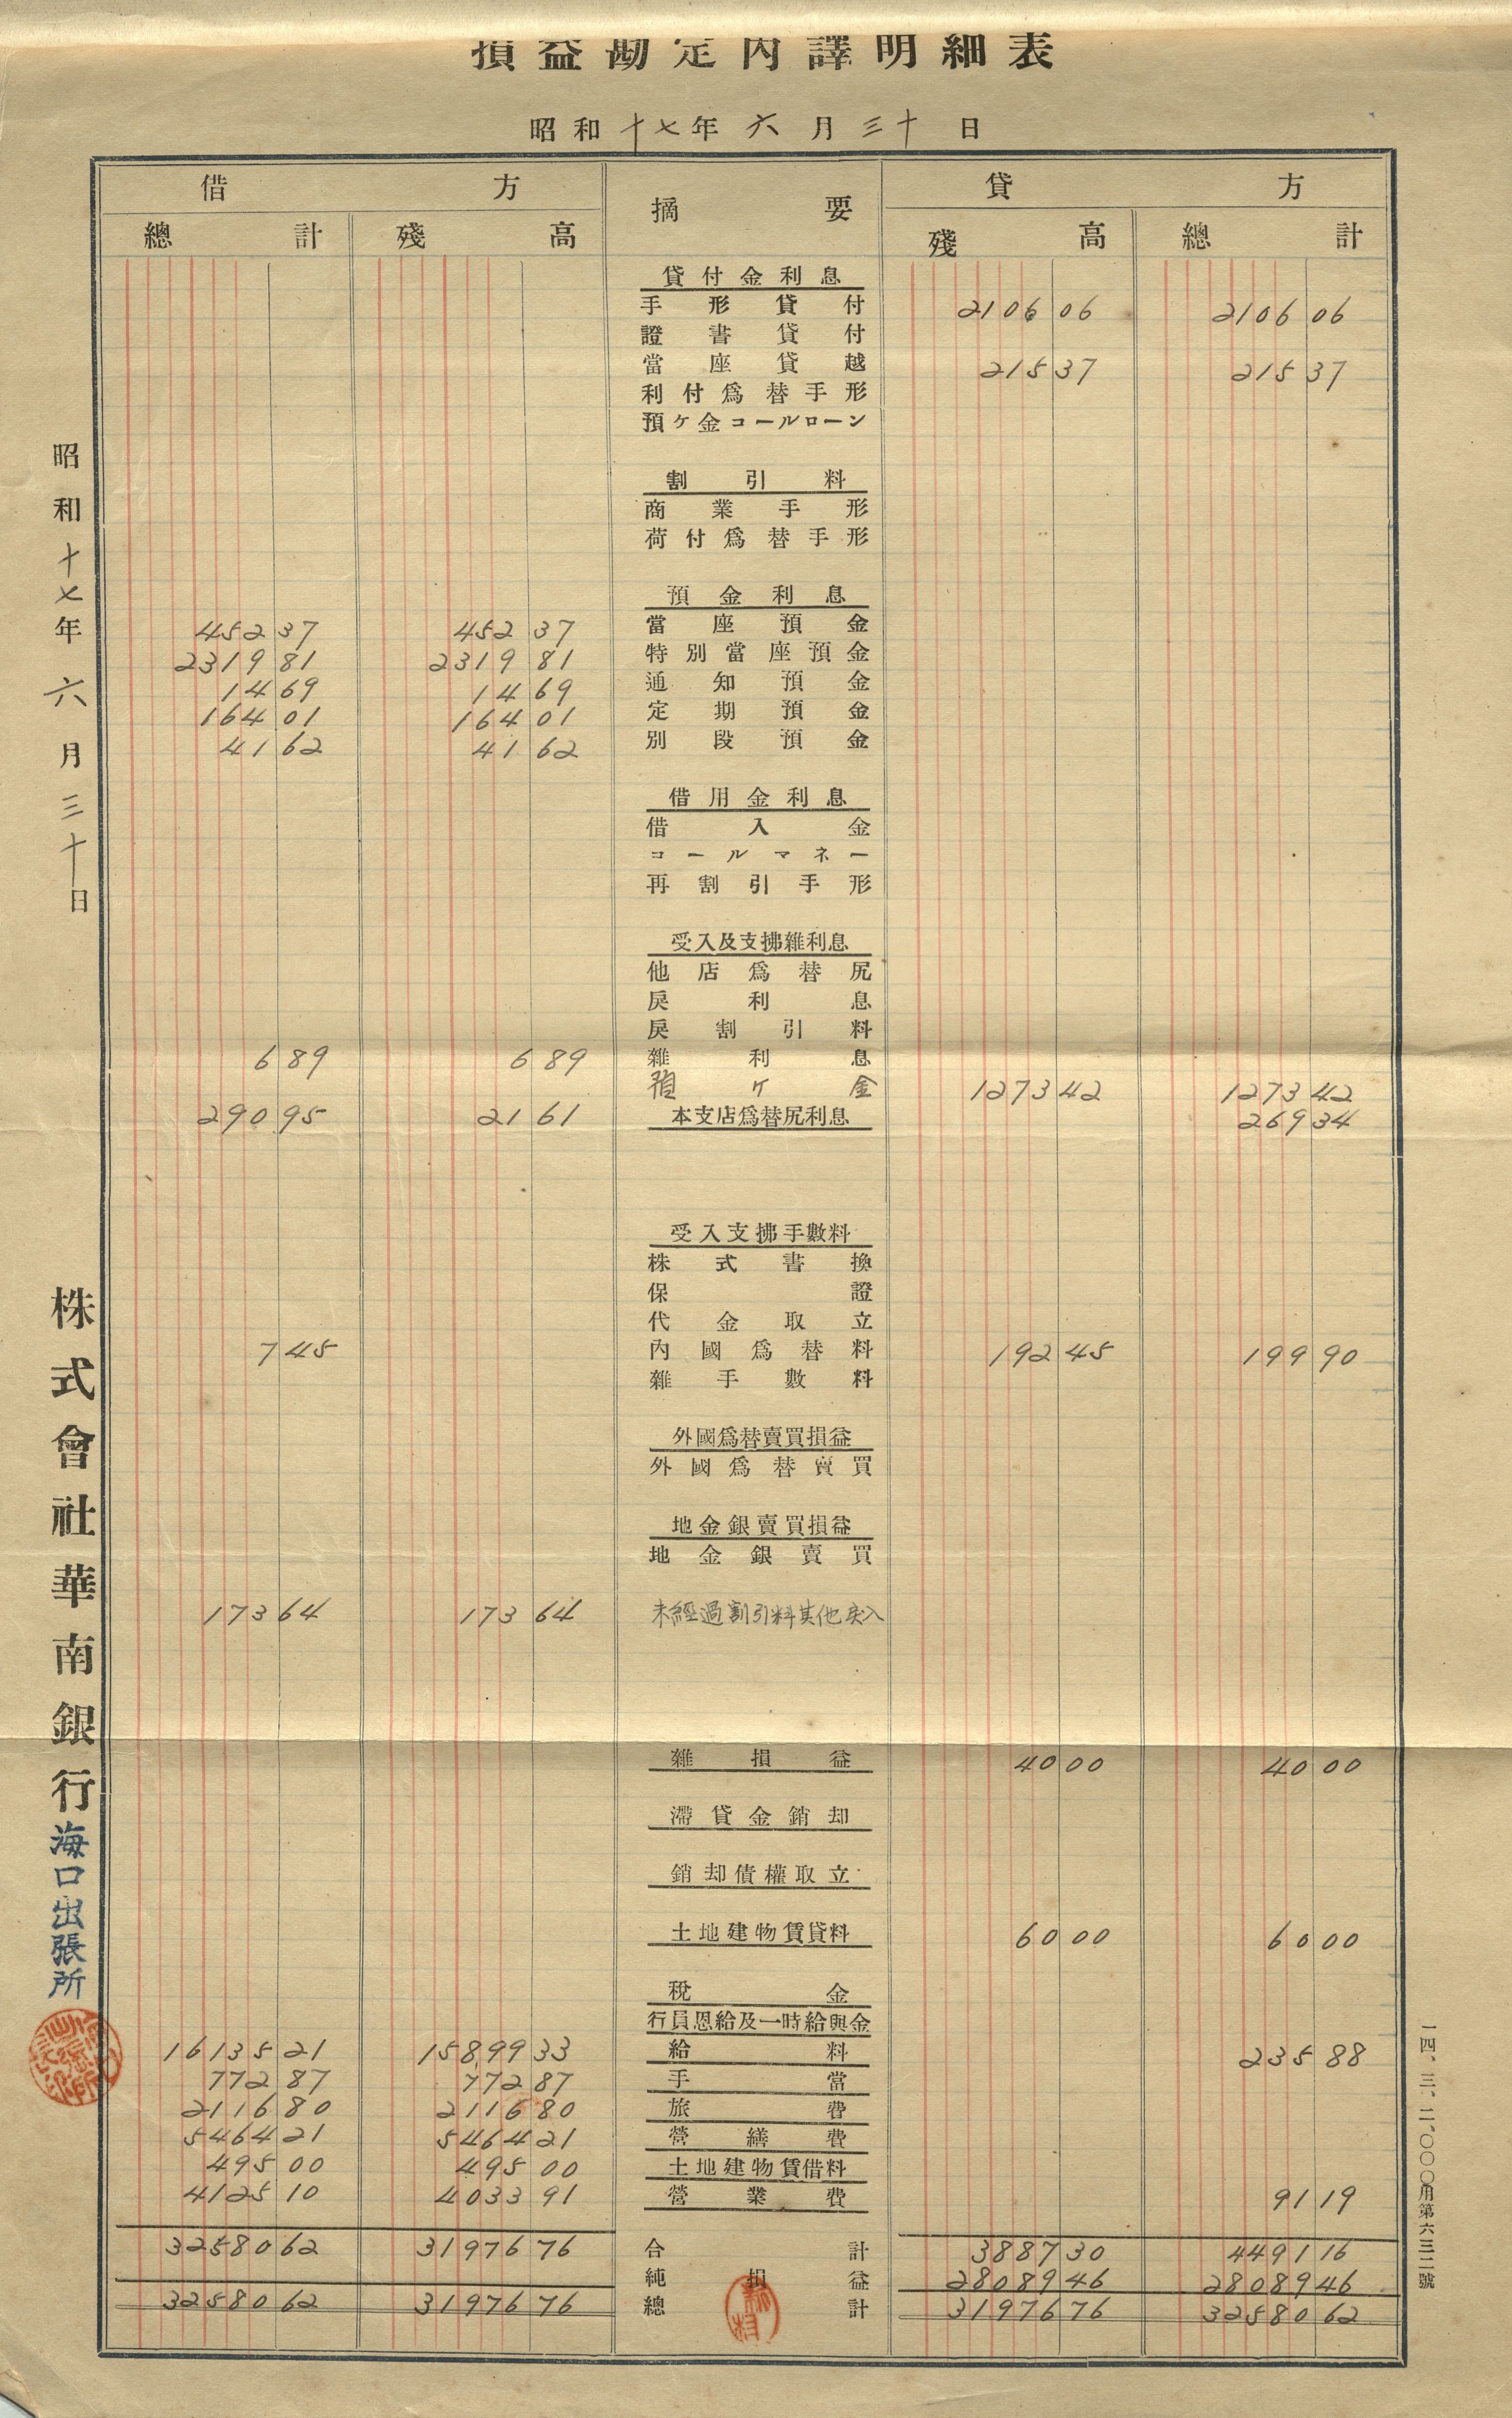 損益勘定內譯明細表
昭和十七年六月三十日
借方 摘要 貸方
總計 殘高 殘高 總計
貸付金利息
手形貸付 2106 06 2106 06
證書貸付
當座貸越 215 37 215 37
利付爲替手形
預ケ金コールローン
割引料
商業手形
荷付爲替手形
預金利息
452 37 452 37 當座預金
2319 81 2319 81 特別當座預金
14 69 14 69 通知預金
164 01 164 01 定期預金
41 62 41 62 別段預金
借用金利息
借入金
コールマネー
再割引手形
受入及支拂雜利息
他店爲替尻
戾利息
戾割引料
6 89 6 89 雜利息
預ケ金 1273 42 1273 42
290 95 21 61 本支店爲替尻利息 269 34
受入支拂手數料
株式書換
保證
代金取立
7 45 內國爲替料 192 45 199 90
雜手數料
外國爲替賣買損益
外國爲替賣買
地金銀賣買損益
地金銀賣買
173 64 173 64 未經過割引料其他戾入
雜損益 40 00 40 00
滯貸金銷却
銷却債權取立
土地建物賃貸料 60 00 60 00
稅金
行員恩給及一時給與金
16135 21 15899 33 給料 235 88
772 87 772 87 手當
2116 80 2116 80 旅費
5464 21 5464 21 營繕費
495 00 495 00 土地建物賃借料
4125 10 4033 91 營業費 91 19
32580 62 31976 76 合計 3887 30 4491 16
純損益 28089 46 28089 46
32580 62 31976 76 總計 31976 76 32580 62
昭和十七年六月三十日
株式會社華南銀行海口出張所
一四、三、二、〇〇〇用第六三二號